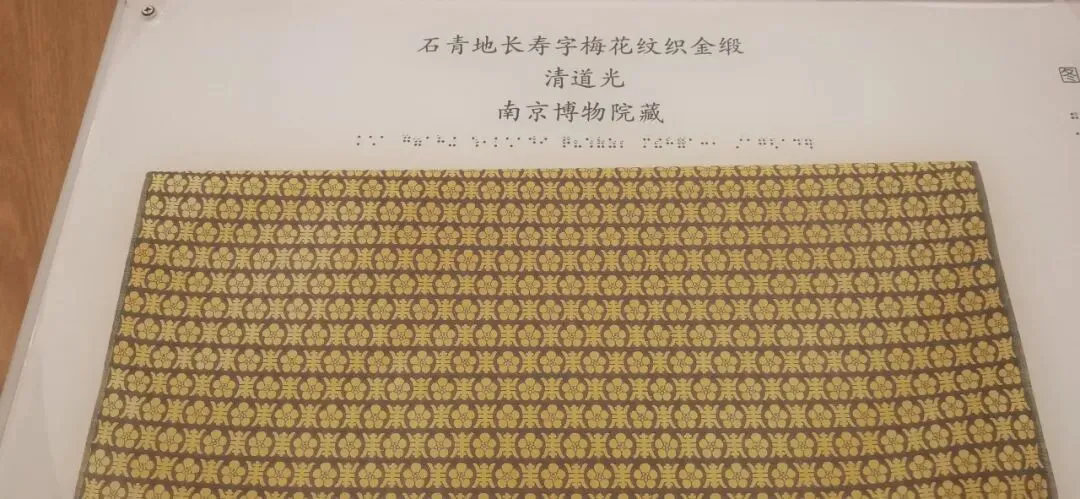 石青地长寿字梅花纹织金缎
清道光
南京博物院藏
图